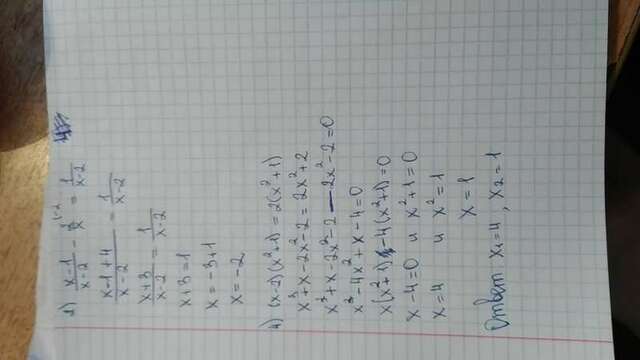 2) (x-1)/(x-2) - 2/x = 1/(x-2)
(x-1+4)/(x-2) = 1/(x-2)
(x+3)/(x-2) = 1/(x-2)
x+3=1
x = -3+1
x = -2
4) (x-2)(x²+1) = 2(x²+1)
x³+x-2x²-2 = 2x²+2
x³+x-2x²-2-2x²-2=0
x³-4x²+x-4=0
x(x²+1)-4(x²+1)=0
x-4=0 и x²+1=0
x=4 и x²=1
x=1
Ответ: x₁=4, x₂=1